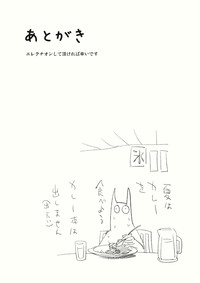 あとがき
エレクチオンして頂ければ幸いです
氷
夏は
カレーを
食べよう
カレー本は
出しません